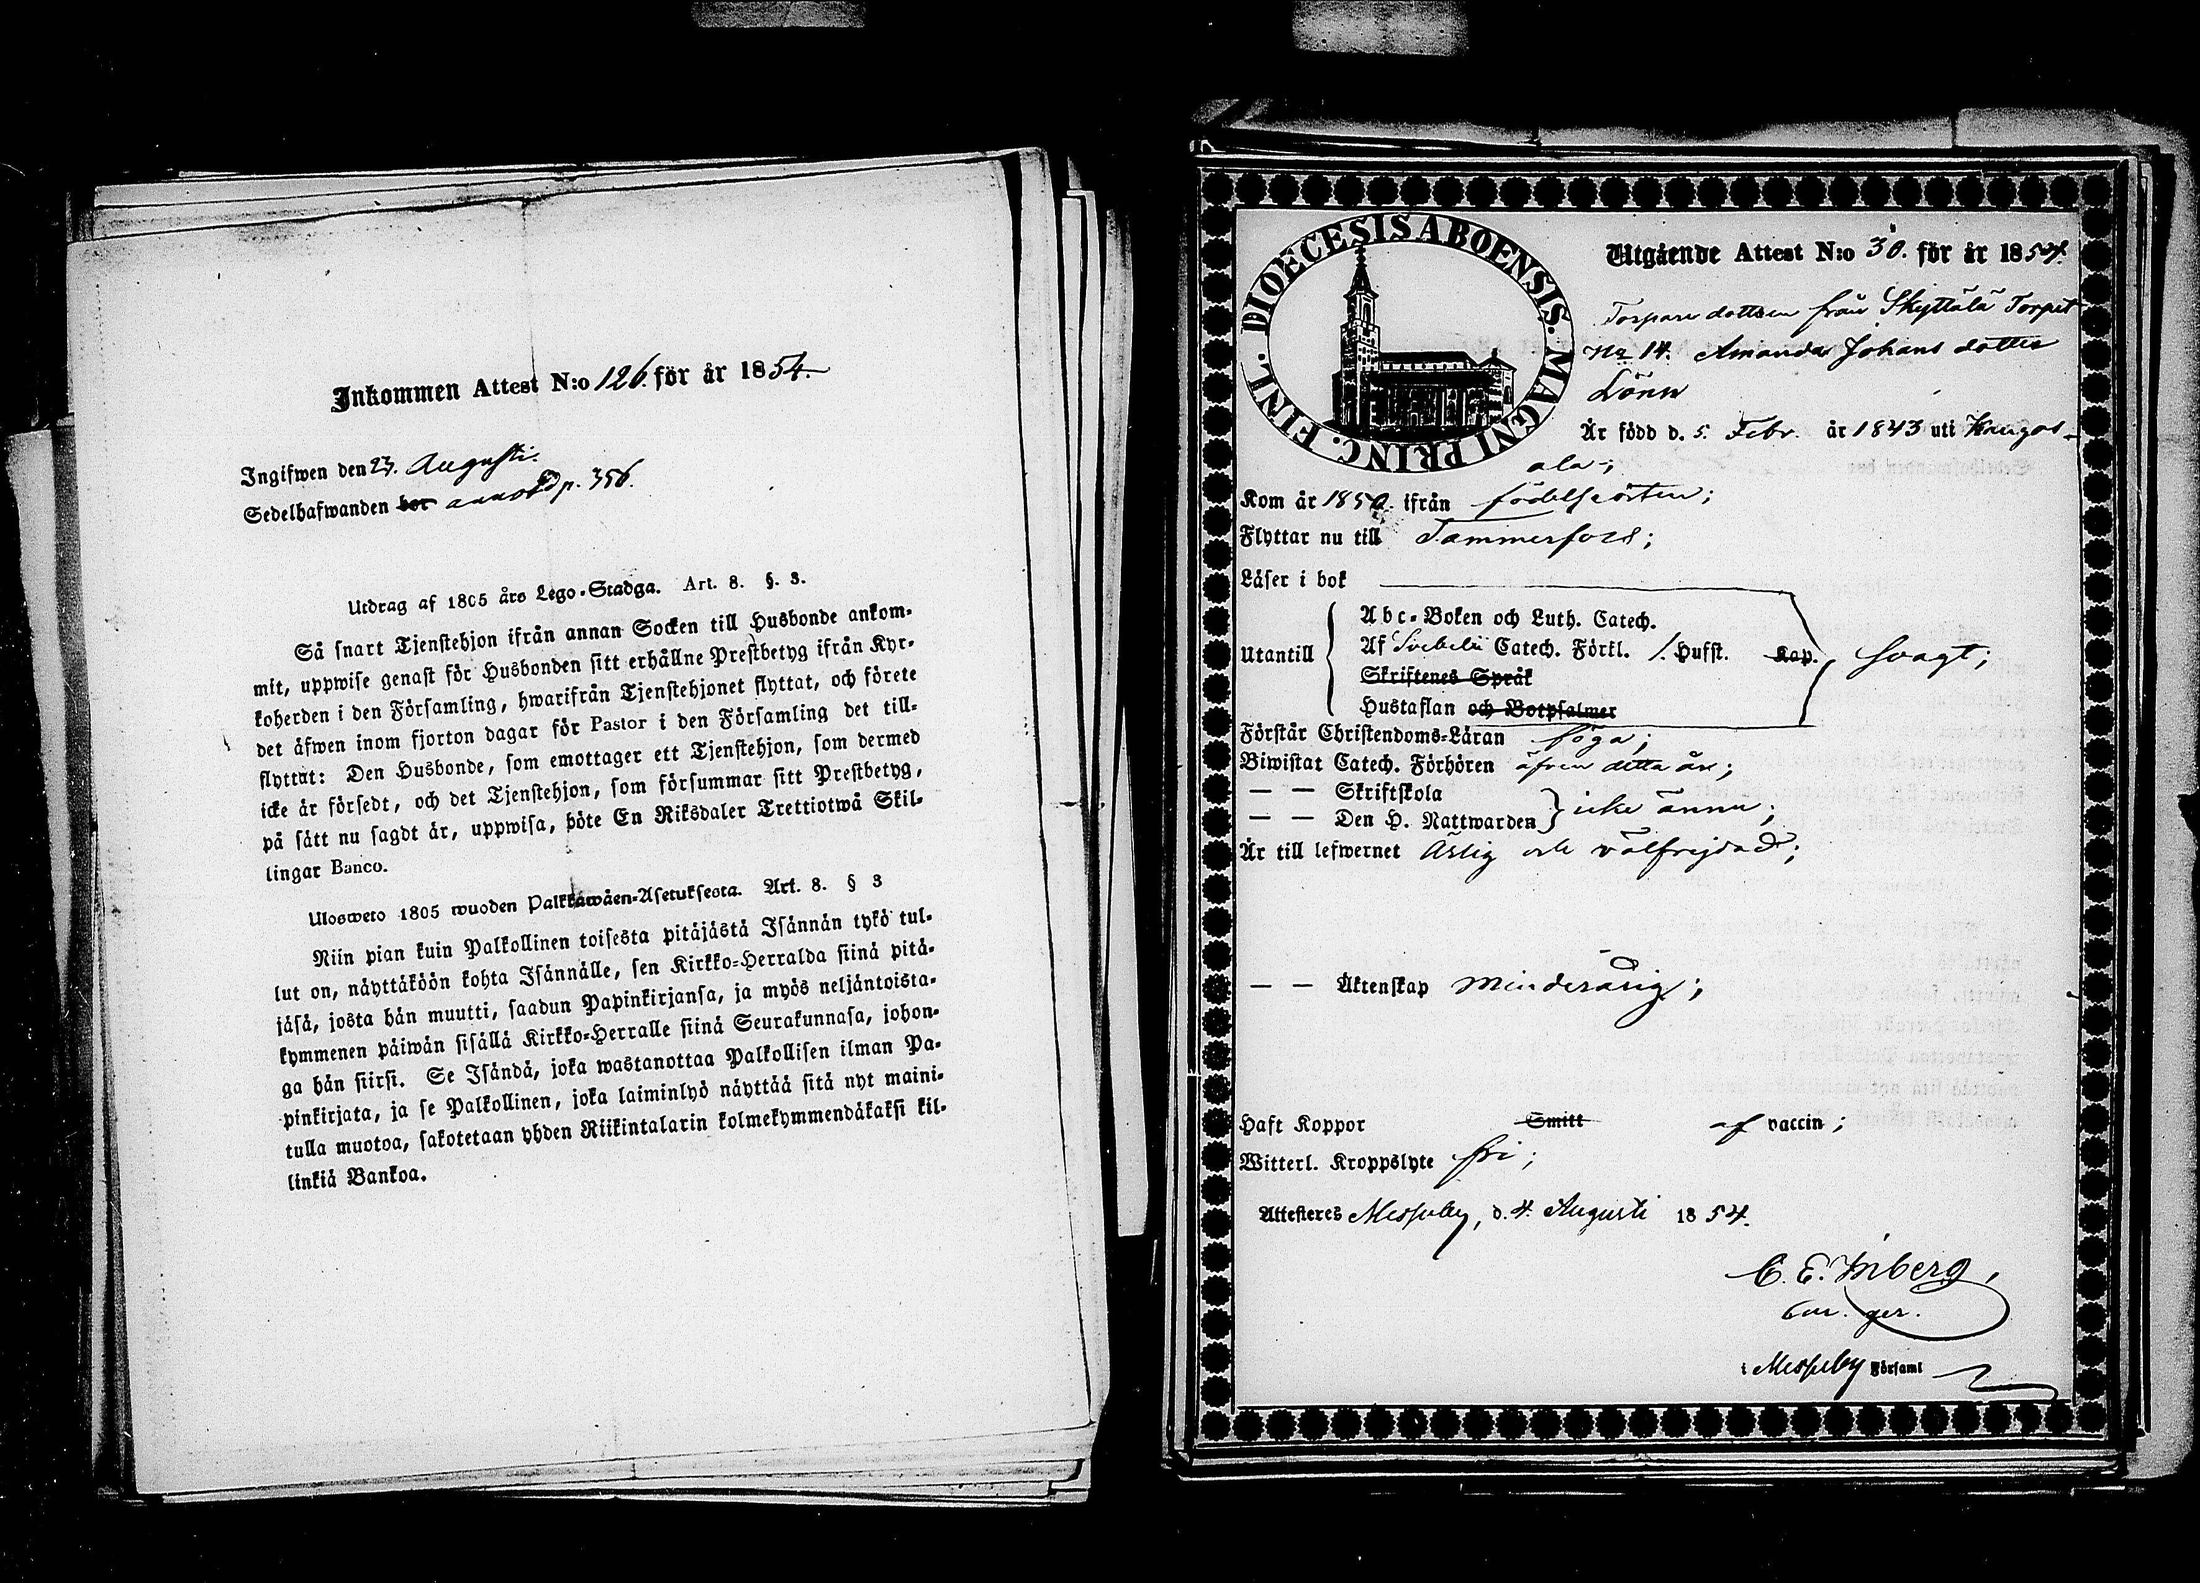 Inkommen Attest N:o 126. för år 1854.
Ingifwen den 23. Augusti.
Sedelhafwanden bor annoterd p. 356.
Utdrag af 1805 års Lego-Stadga. Art. 8. §. 3.
Så snart Tjenstehjon ifrån annan Socken till Husbonde ankom-
mit, uppwise genast för Husbonden sitt erhållne Prestbetyg ifrån Kyr-
koherden i den Församling, hwarifrån Tjenstehjonet flyttat, och förete
det äfwen inom fjorton dagar för Pastor i den Församling det till-
flyttat: Den Husbonde, som emottager ett Tjenstehjon, som dermed
icke är försedt, och det Tjenstehjon, som försummar sitt Prestbetyg,
på sätt nu sagdt är, uppwisa, böte En Riksdaler Trettiotwå Skil-
lingar Banco.
Ulosweto 1805 wuoden Palkkawäen-Asetuksesta. Art. 8. § 3
Niin pian kuin Palkollinen toisesta pitäjästä Isännän tykö tul-
lut on, näyttäköön kohta Isännälle, sen Kirkko-Herralda siinä pitä-
jäsä, josta hän muutti, saadun Papinkirjansa, ja myös neljäntoista-
kymmenen päiwän sisällä Kirkko-Herralle siinä Seurakunnasa, johon-
ga hän siirsi. Se Isändä, joka wastanottaa Palkollisen ilman Pa-
pinkirjata, ja se Palkollinen, joka laiminlyö näyttää sitä nyt maini-
tulla muotoa, sakotetaan yhden Riikintalarin kolmekymmendäkaksi kil-
linkiä Bankoa.
DIOECESIS ABOENSIS. MAGNI PRINC. FINL.
Utgående Attest N:o 30. för år 1854.
Torpare dottren från Skyttälä Torpet
No 14. Amanda Johans dotter
Lönn
Är född d. 5. Febr. år 1843 uti Kangas-
ala;
Kom år 1850. ifrån födelseorten;
Flyttar nu till Tammerfors;
Läser i bok
Abc-Boken och Luth. Catech.
Utantill Af Svebelii Catech. Förkl. 1. Hufst. Kap. svagt;
Skriftenes Språk
Hustaflan och Botpsalmer
Förstår Christendoms-Läran föga;
Biwistat Catech. Förhören äfven detta år;
— — Skriftskola
— — Den H. Nattwarden icke ännu;
Är till lefwernet ärlig och välfrejdad;
— — Äktenskap minderårig;
Haft Koppor Smitt af vaccin;
Witterl. Kroppslyte fri;
Attesteres Messuby, d. 4. Augusti 1854.
C. E. Inberg,
Cur. ger.
i Messuby Församl